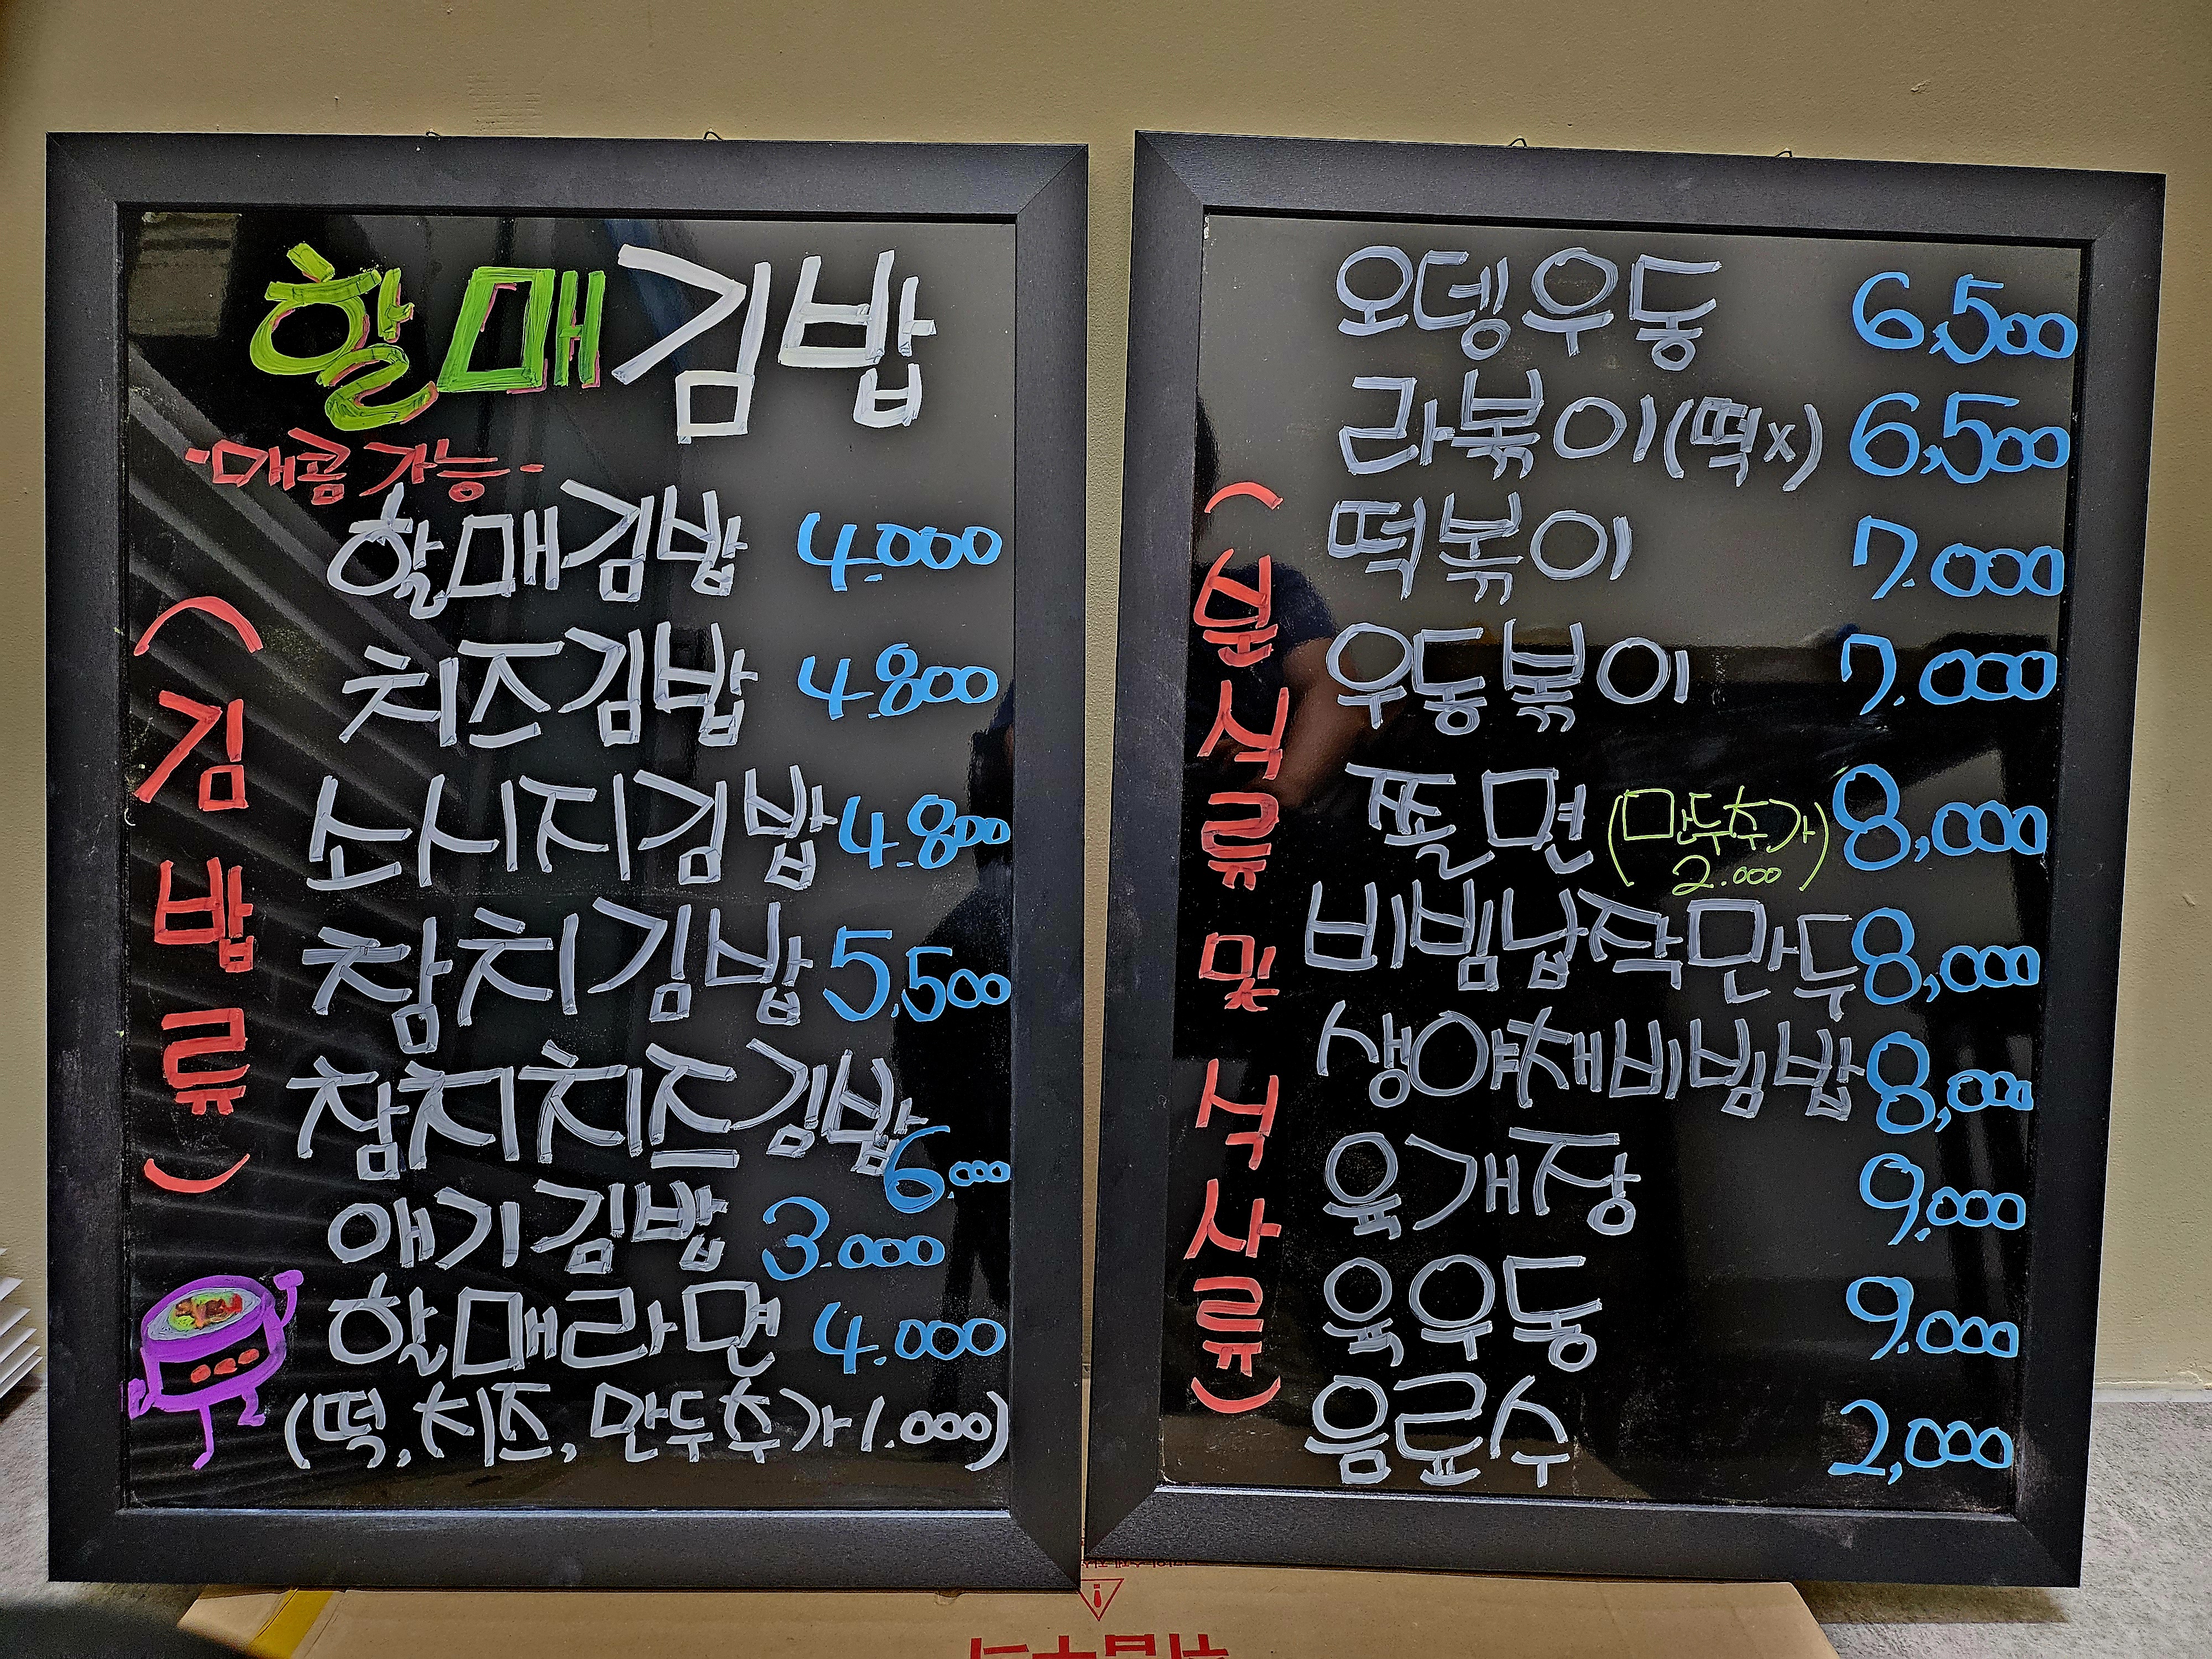 할매김밥
-매콤가능-
(김밥류)
할매김밥 4.000
치즈김밥 4.800
소시지김밥 4.800
참치김밥 5,500
참치치즈김밥 6.000
애기김밥 3.000
할매라면 4.000
(떡,치즈,만두추가1.000)
(분식류 및 식사류)
오뎅우동 6,500
라볶이(떡x) 6,500
떡볶이 7.000
우동볶이 7.000
쫄면(만두추가 2.000) 8,000
비빔납작만두 8,000
생야채비빔밥 8,000
육개장 9.000
육우동 9.000
음료수 2,000